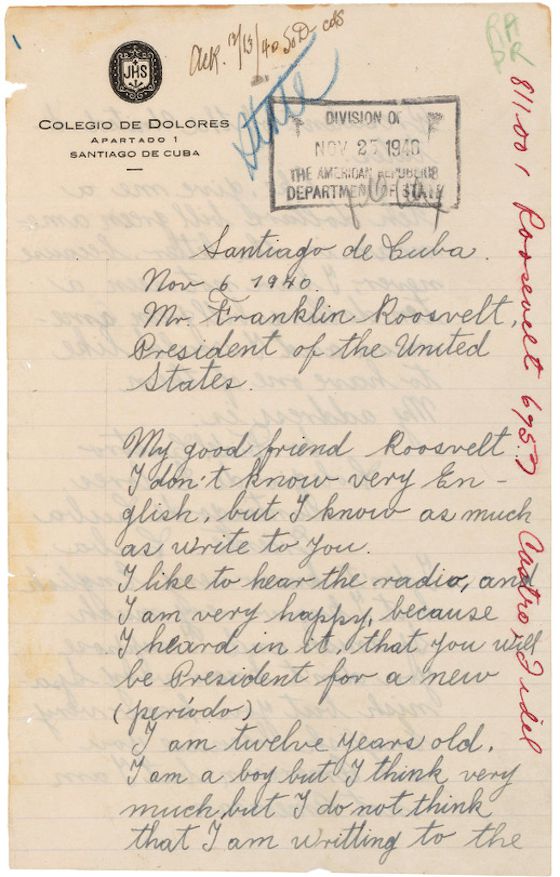 JHS
COLEGIO DE DOLORES
APARTADO 1
SANTIAGO DE CUBA
Ack. 12/13/40
State
DIVISION OF
NOV 25 1940
THE AMERICAN REPUBLICS
DEPARTMENT OF STATE
RA
DR
811.001 Roosevelt 6957 Castro, Fidel
Santiago de Cuba.
Nov 6 1940.
Mr. Franklin Roosvelt,
President of the United
States.
My good friend Roosvelt
I don't know very En-
glish, but I know as much
as write to you.
I like to hear the radio, and
I am very happy, because
I heard in it, that you will
be President for a new
(período)
I am twelve years old.
I am a boy but I think very
much but I do not think
that I am writting to the